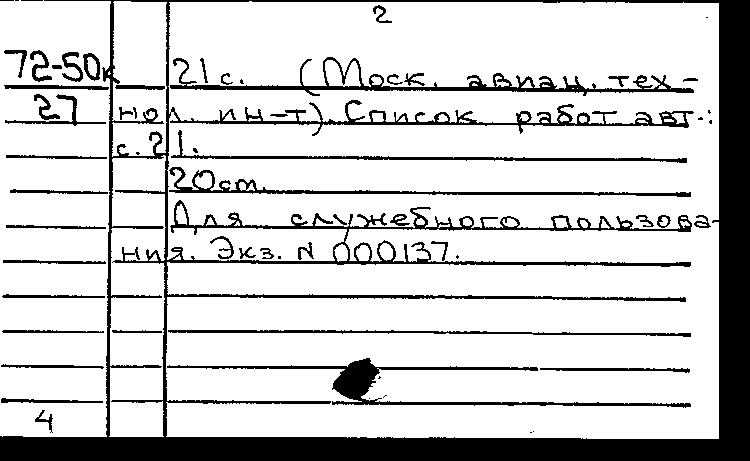 2
72-50к 21с. (Моск. авиац. тех-
27 нол. ин-т). Список работ авт.:
с. 21.
20см.
Для служебного пользова-
ния. Экз. N 000137.
4